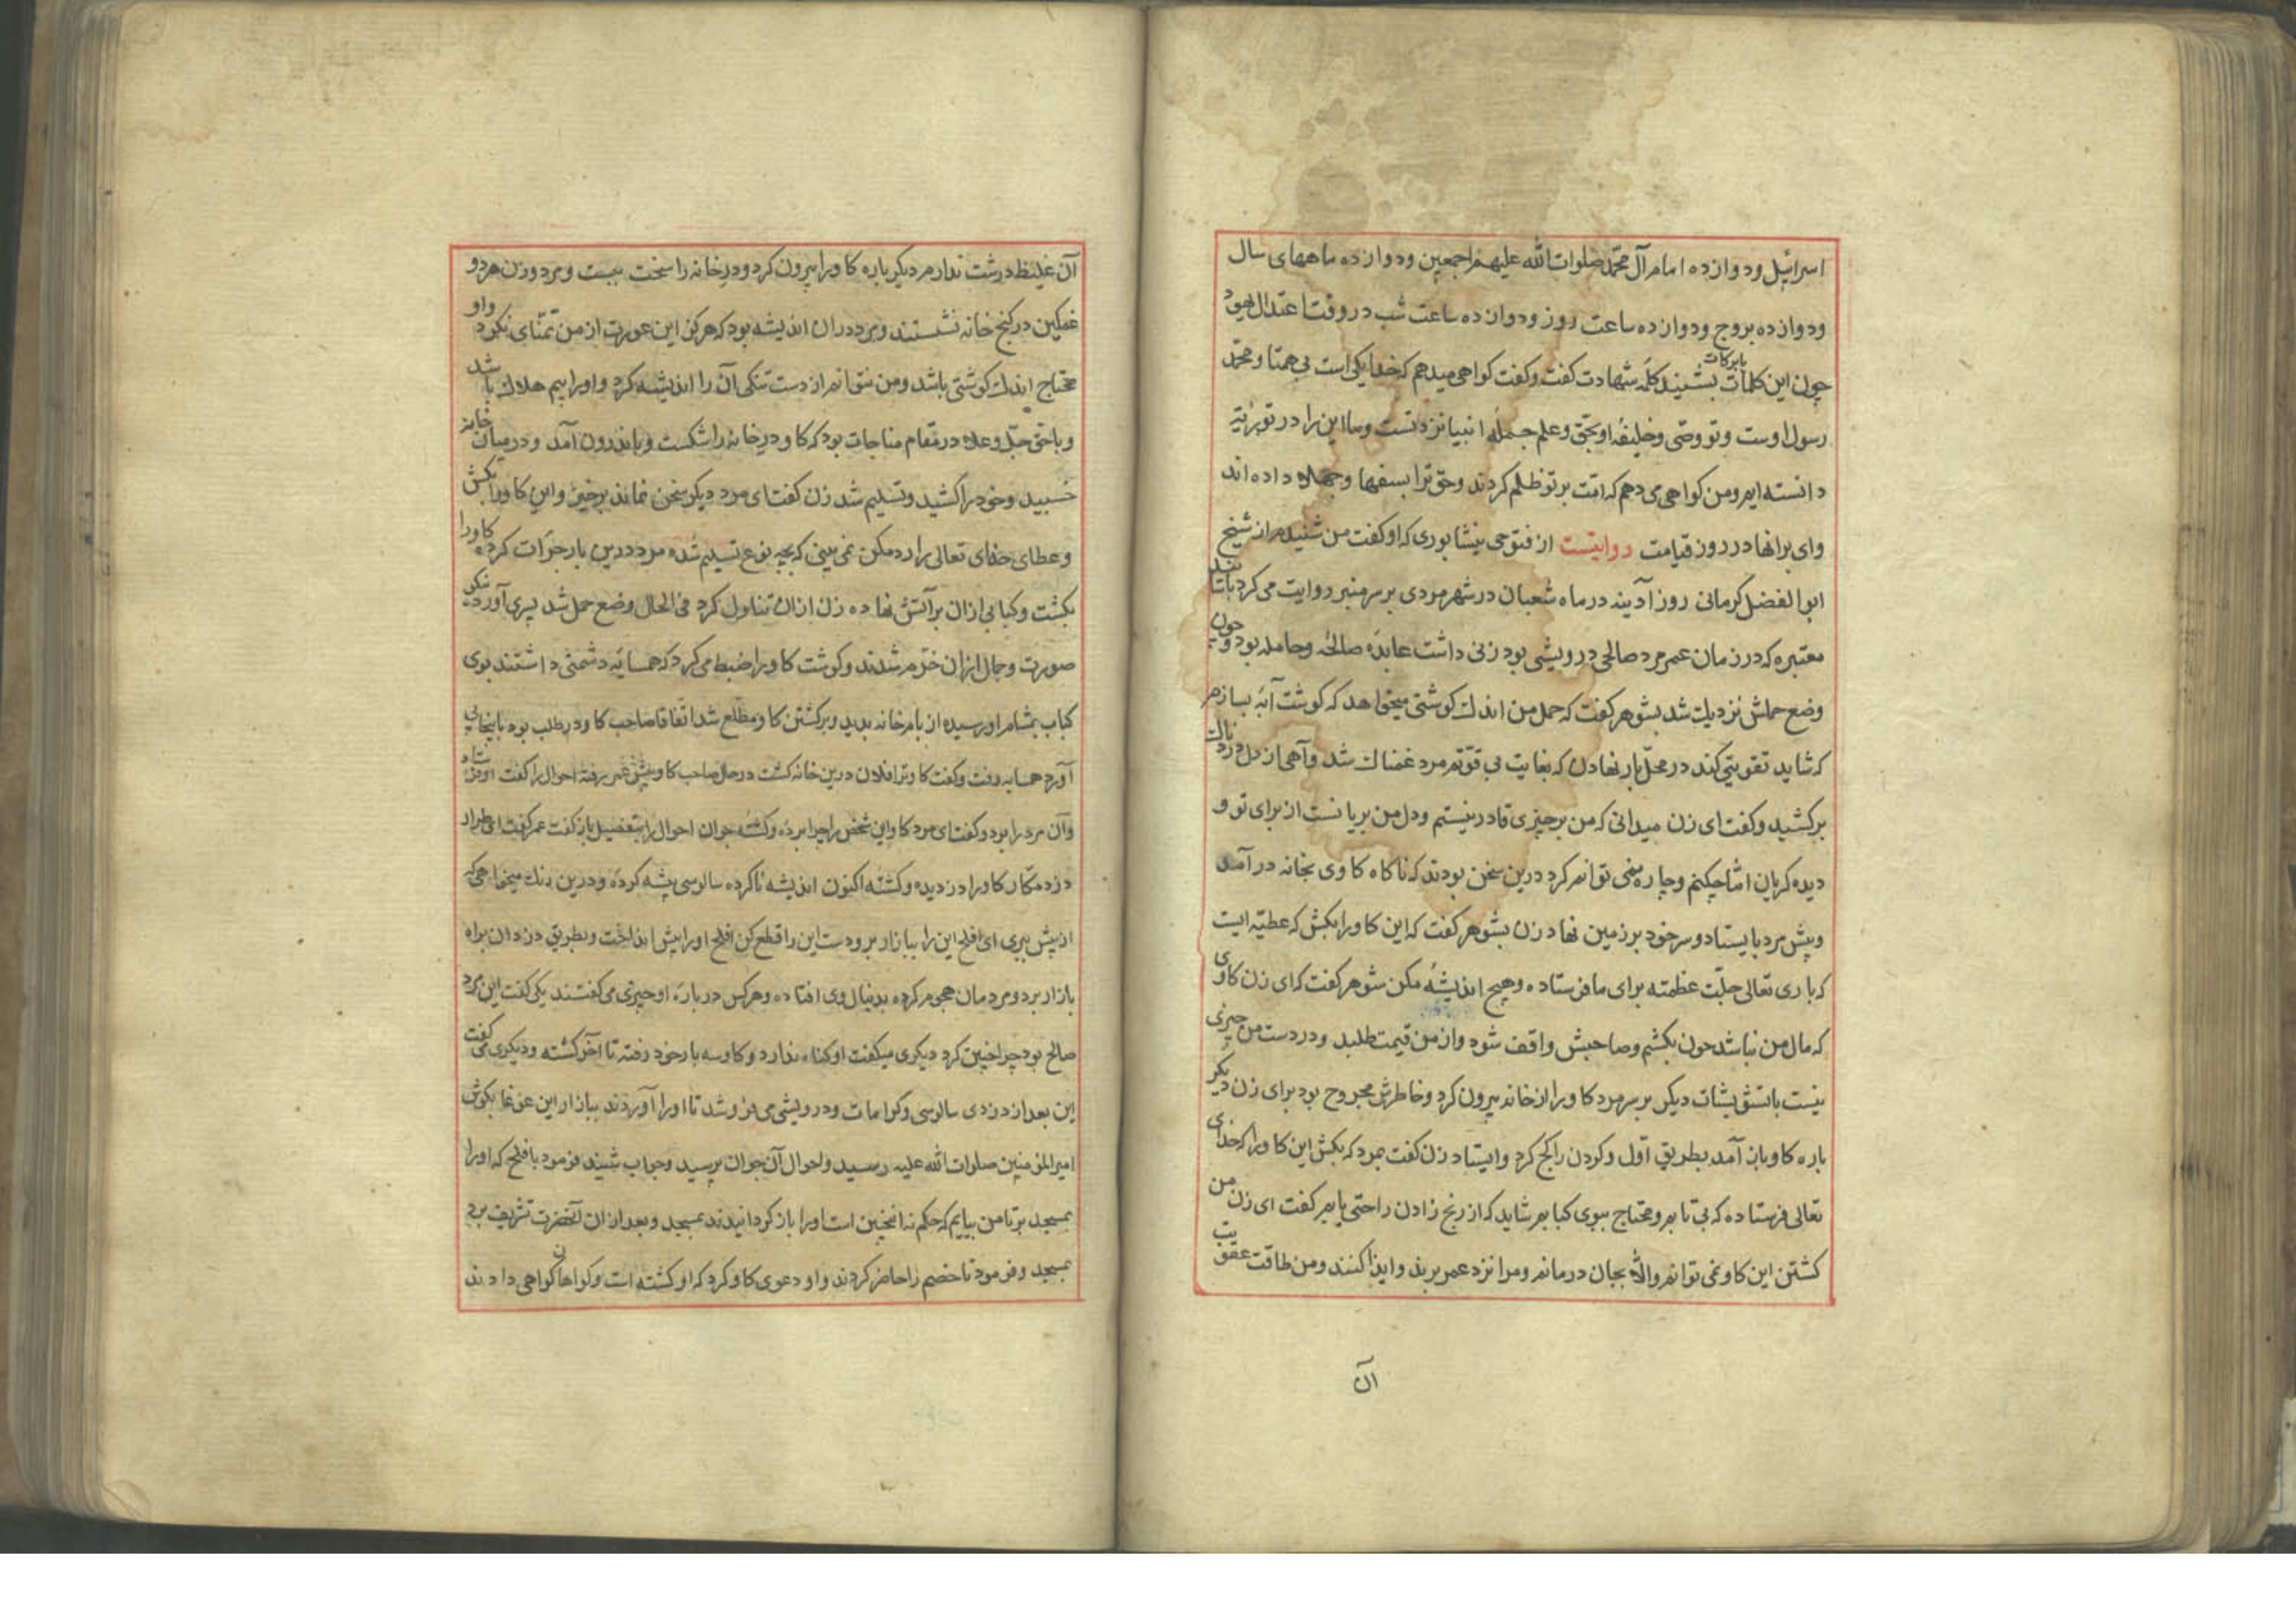 اسرائیل و دوازده امام آل محمد صلوات الله علیهم اجمعین و دوازده ماههای سال
و دوازده بروج و دوازده ساعت روز و دوازده ساعت شب در وقت اعتدال یهود
چون این کلمات بابرکات بشنید کلمه شهادت گفت و گفت کواهی میدهم که خدا یکی است بی همتا و محمد
رسول اوست و تو وصی و خلیفه او بحق و علم جمله انبیا نزد تست و ما این را در توریة
دانسته ایم و من کواهی می دهم که امت بر تو ظلم کردند و حق ترا بسفها و جهلا داده اند
وای بر انها در روز قیامت روایتست از فتوحی نیشابوری که او کفت من شنیدم از شیخ
ابوالفضل کرمانی روز آدینه در ماه شعبان در شهر مردی بر سر منبر روایت می کرد باسناد
معتبره که در زمان عمر مرد صالحی درویشی بود زنی داشت عابده صالحه و حامله بود و چون
وضع حملش نزدیک شد بشوهر کفت که حمل من اندک کوشتی میخواهد که کوشت آبه بسازم
که شاید تقویتی کند در محل بار نهادن که بغایت بی قوتم مرد غمناک شد و آهی از دل دردناک
برکشید و کفت ای زن میدانی که من بر چیزی قادر نیستم و دل من بریانست از برای تو و
دیده کریان اما چکنم و چاره نمی توانم کرد درین سخن بودند که ناکاه کاوی بخانه درآمد
و پیش مرد بایستاد و سر خود بر زمین نهاد زن بشوهر کفت که این کاو را بکش که عطیه ایست
که باری تعالی جلت عظمته برای ما فرستاده و هیچ اندیشه مکن شوهر کفت که ای زن کاوی
که مال من نباشد چون بکشم و صاحبش واقف شود و از من قیمت طلبد و در دست من چیزی
نیست باتشویشات دیکر بر سر مرد کاو را از خانه بیرون کرد و خاطرش مجروح بود برای زن دیکر
باره کاو باز آمد بطریق اول و کردن را کج کرد و ایستاد زن کفت مرد که بکش این کاو را که خدای
تعالی فرستاده که بی تابم و محتاج ببوی کبابم شاید که از رنج زادن راحتی یابم کفت ای زن من
کشتن این کاو نمی توانم والله بجان درمانم و مرا نزد عمر برند و ایذا کنند و من طاقت عقوبت
آن
آن غلیظ درشت ندارم دیکر باره کاو را بیرون کرد و در خانه را سخت ببست و مرد و زن هر دو
غمکین در کنج خانه نشستند و مرد در ان اندیشه بود که هرکز این عورت از من تمنای نکرد و او
محتاج اندک کوشتی باشد و من نتوانم از دست تنکی آن را اندیشه کرد و او را بیم هلاک باشد
و با حق جل و علا در مقام مناجات بود که کاو در خانه را شکست و باندرون آمد و در میان خانه
خسبید و خود را کشید و تسلیم شد زن کفت ای مرد دیکر سخن نماند برخیز و این کاو را بکش
و عطای خدای تعالی را رد مکن نمی بینی که بچه نوع تسلیم شده مرد درین بار جرأت کرده کاو را
بکشت و کبابی ازان بر آتش نهاده زن ازان تناول کرد فی الحال وضع حمل شد پسری آورد نیکو
صورت و جمال ازان خرم شدند و کوشت کاو را ضبط می کرد که همسایه دشمنی داشتند بوی
کباب بمشام او رسیده از بام خانه بدید و بر کشتن کاو مطلع شد اتفاقا صاحب کاو در طلب بود
آورد همسایه رفت و کفت کاو ترا فلان درین خانه کشت در حال صاحب کاو پیش عمر رفته احوال را کفت
و آن مرد را برد و کفت ای مرد کاو این شخص را چرا برده و کشته جوان احوال را بتفصیل باز کفت عمر کفت ای طرار
دزد مکار کاو را دزدیده و کشته اکنون اندیشه ناکرده سالوسی پیشه کرده و درین رنک میخواهی که
از پیش ببری ای افلح این را ببازار بر و دست این را قطع کن افلح او را پیش انداخت و بطریق دزدان براه
بازار برد و مردمان هجوم کرده بدنبال وی افتاده و هر کس در باره او چیزی می کفتند یکی کفت این مرد
صالح بود چرا چنین کرد دیکری میکفت او کناه ندارد و کاو سه بار خود رفته تا آخر کشته و دیکری می کفت
این بعد از دزدی سالوسی و کرامات و درویشی می فروشد تا او را آوردند ببازار این غوغا بکوش
امیرالمؤمنین صلوات الله علیه رسید و احوال آن جوان پرسید و جواب شنید فرمود با افلح که او را
بمسجد بر تا من بیایم که حکم نه انچنین است او را باز کردانیدند بمسجد و بعد ازان آنحضرت تشریف برد
بمسجد و فرمود تا خصم را حاضر کردند و او دعوی کاو کرد که او کشته است و کواهان کواهی دادند